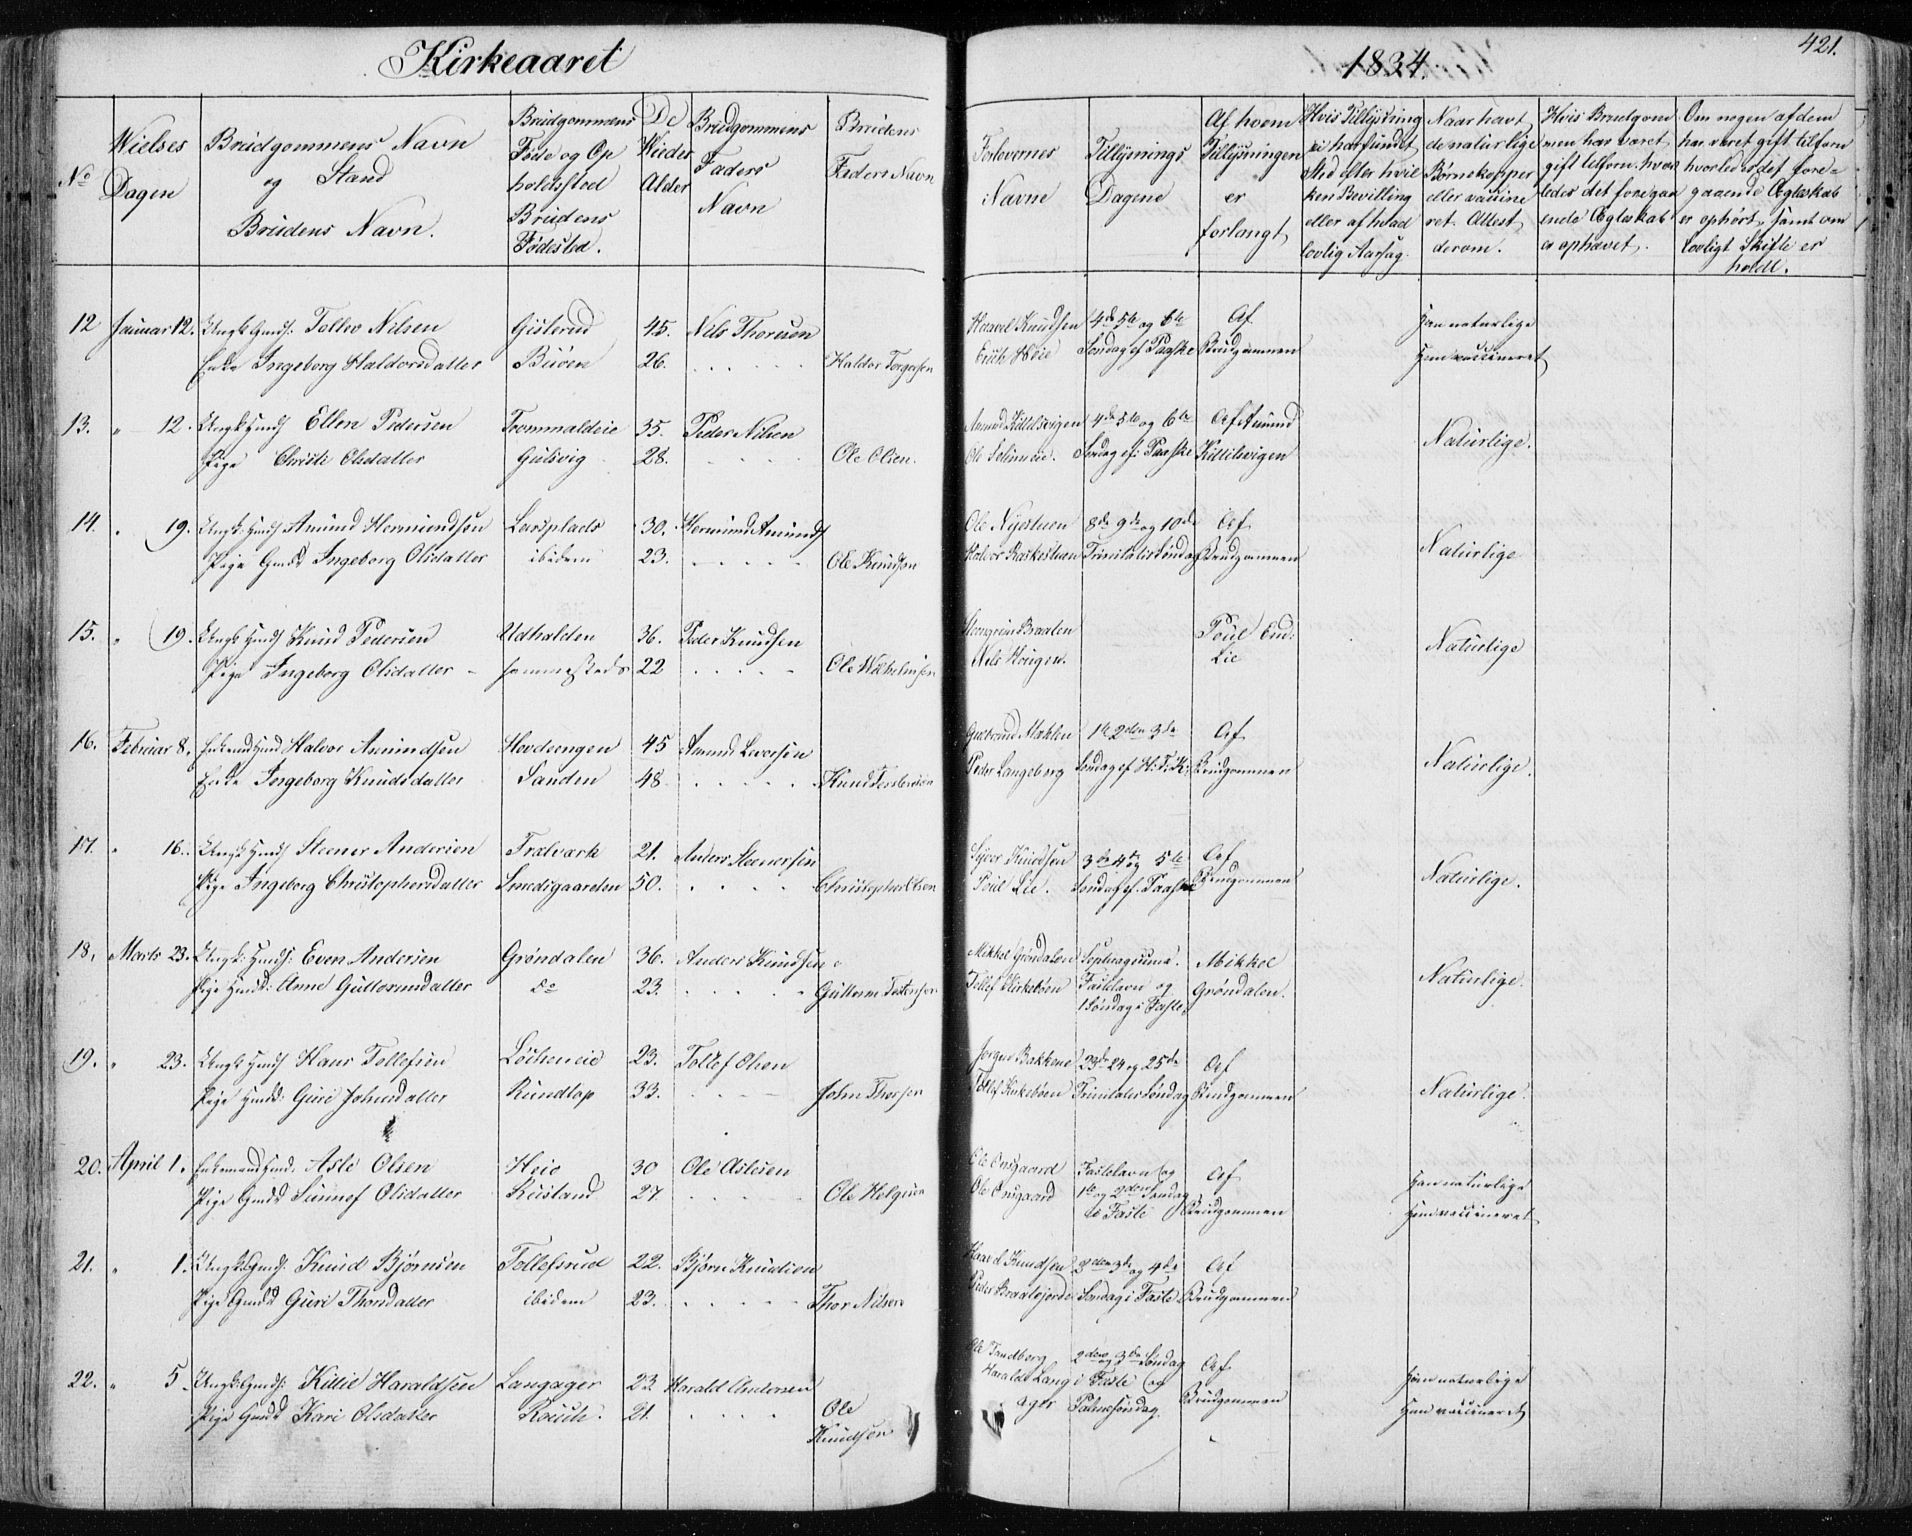 Kirkeaaret
1834.
421.
No
Wielses Dagen
Brudgommens Navn og Stand Brudens Navn.
Brudgommens Føde og Opholdssted Brudens Fødested.
De Wiedes Alder
Brudgommens Faders Navn
Brudens Faders Navn
Forlovernes Navne
Tillysnings Dagene
Af hvem Tillysningen er forlangt
Hvis Tillysning ei har fundet Sted efter hvilken Bevilling eller af hvad lovlig Aarsag.
Naar havt de naturlige Børnekopper eller vaccineret. Attest derom.
Hvis Brudgommen har været gift tilforn hvorledes det foregaaende Ægteskab er ophævet.
Om nogen af dem har været gift tilforn hvorledes det foregaaende Ægteskab er ophørt, samt om lovligt Skifte er holdt.
12 Januar 12. Ungk. Gmd: Tollev Nilsen Gisterud 45. Nils Thoresen Haavel Knudsen 4de 5te og 6te Af Han naturlige
Enke Ingeborg Haldorsdatter Buöen 26. Haldor Torgersen Erik Hoie Søndag ef Paaske Brudgommen Hun vaccineret
13. " 12. Ungk Hmd Ellen Pedersen Trommaldeie 35. Peder Nilsen Amund Kittilsvigen 4de 5te og 6te Af Amund Naturlige.
Pige Christi Olsdatter Gulsvig 28. Ole Olsen. Ole Solemoie. Søndag ef: Paaske Kittilsvigen
14. " 19. Ungk: Hmd Amund Hermundsen Larsplads 30. Hermund Amunds Ole Nyestuen 8de 9de og 10de Af Naturlige
Pige Gmds Ingeborg Olsdatter ibidem 23. Ole Knudsen Halvor Baskestuen Trinitatis Søndag Brudgommen
15. " 19. Ungk Hmd Knud Pedersen Udhalden 36. Peder Knudsen Steengrim Braaten Poul End: Naturlige
Pige Ingeborg Olsdatter sammesteds 22 Ole Wilhelmsen Nils Haugen. Lie
16. Februar 8. Enkemd Hmd Halvor Amundsen Hovdeengen 45 Amund Leversen Gudbrand Mæhlen 1te 2den 3de Af Naturlige.
Enke Ingeborg Knudsdatter Sanden 48 Knud Torstensen Peder Langeberg Søndag ef H: T: K: Brudgommen
17. " 16. Ungk Hmd Steener Andersen Trælvark 21. Anders Steenersen Syver Knudsen 3die 4de og 5te Af Naturlige.
Pige Ingeborg Christophersdatter Smedsgaarden 50. Christopher Olsen Poul Lie. Søndag ef. Paaske Brudgommen
18. Marts 23. Ungk: Hmd: Even Andersen Grøndalen 36. Anders Knudsen Mikkel Grøndalen Septuagesima. Mikkel Naturlige.
Pige Hmds: Anne Guttormsdatter do 23. Guttorm Tostensen Tollef Kirkebøen Fastelavn og Grøndalen.
1 Søndag i Faste.
19. " 23. Ungk Hmd Hans Tollefsen Löcheneie 23. Tollef Olsen Jørgen Bakkene 23de 24 og 25de Af
Pige Hmds: Guri Johnsdatter Rundtop 33. John Thorsen Tollef Kirkebøen Trinitatis Søndag Brudgommen Naturlige.
20. April 1. Enkemand Hmd. Asle Olsen Heie 30 Ole Aslesen Ole Onsgaard Fastelavn og Af Han naturlige
Pige Gmds Sunnof Olsdatter Rustand 27. Ole Helgesen Ole Onsgaard 1te og 2den Søndag Brudgommen Hun vaccineret
i Faste
21. " 1. Ungk: Gmd: Knud Bjørnsen Tollefsrud 22. Bjørn Knudsen Haavel Knudsen 2den 3die og 4de Af
Pige Gmds Guri Thorsdatter ibidem 23. Thor Nilsen Peder Braatejorde Søndag i Faste Brudgommen
22. " 5 Ungk: Gmd: Kittil Haraldsen Langager 23 Harald Andersen Ole Sandberg 2den og 3die Søndag Af Han naturlige
Pige Gmds Kari Olsdatter Rouch. 21. Ole Knudsen Harald Langager i Faste og Palmesøndag. Brudgommen Hun vaccineret